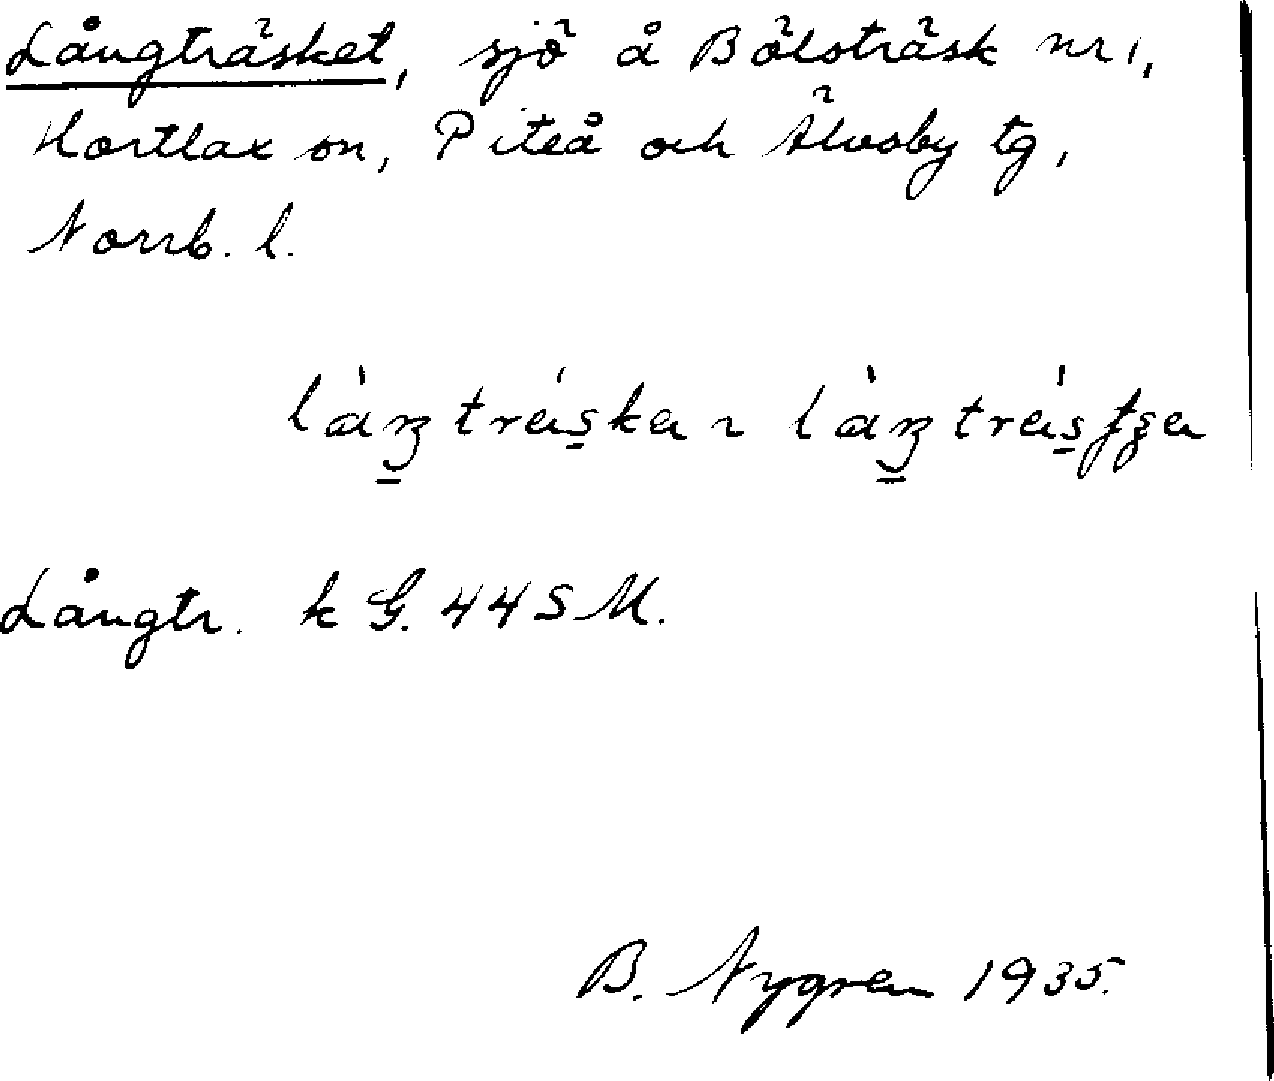 Långträsket, sjö å Bölsträsk nr 1,
Hortlax sn, Piteå och Älvsby tg,
Norrb. l.
Långtr. k G. 44 S M.
B. Nygren 1935.